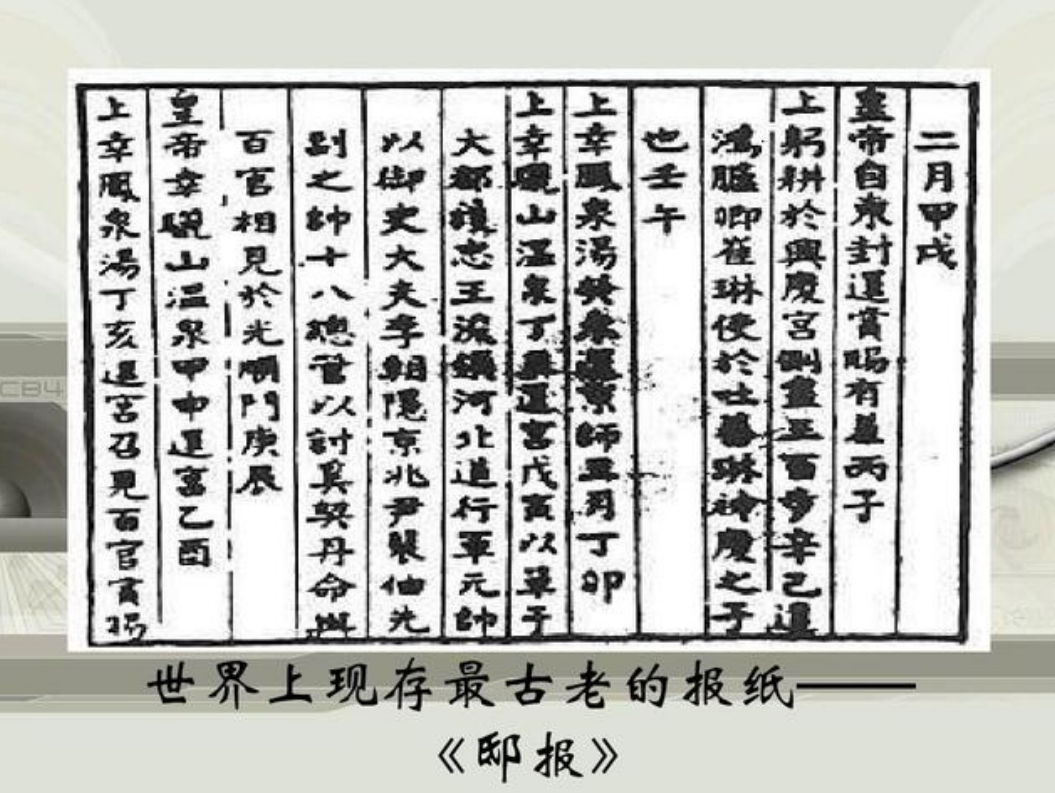 二月甲戌
皇帝自東封還賞賜有差丙子
上躬耕於興慶宮側盡三百步辛巳遣
鴻臚卿崔琳使於吐蕃琳禬慶之子
也壬午
上幸鳳泉湯癸未還京師五月丁卯
上幸驪山溫泉丁還宮戊寅以單于
大都護忠王浚領河北道行軍元帥
以御史大夫李朝隱京兆尹裴伷先
副之帥十八總管以討奚契丹命與
百官相見於光順門庚辰
皇帝幸驪山溫泉甲申還宮乙酉
上幸鳳泉湯丁亥還宮召見百官賞賜
世界上现存最古老的报纸——
《邸报》
CB4